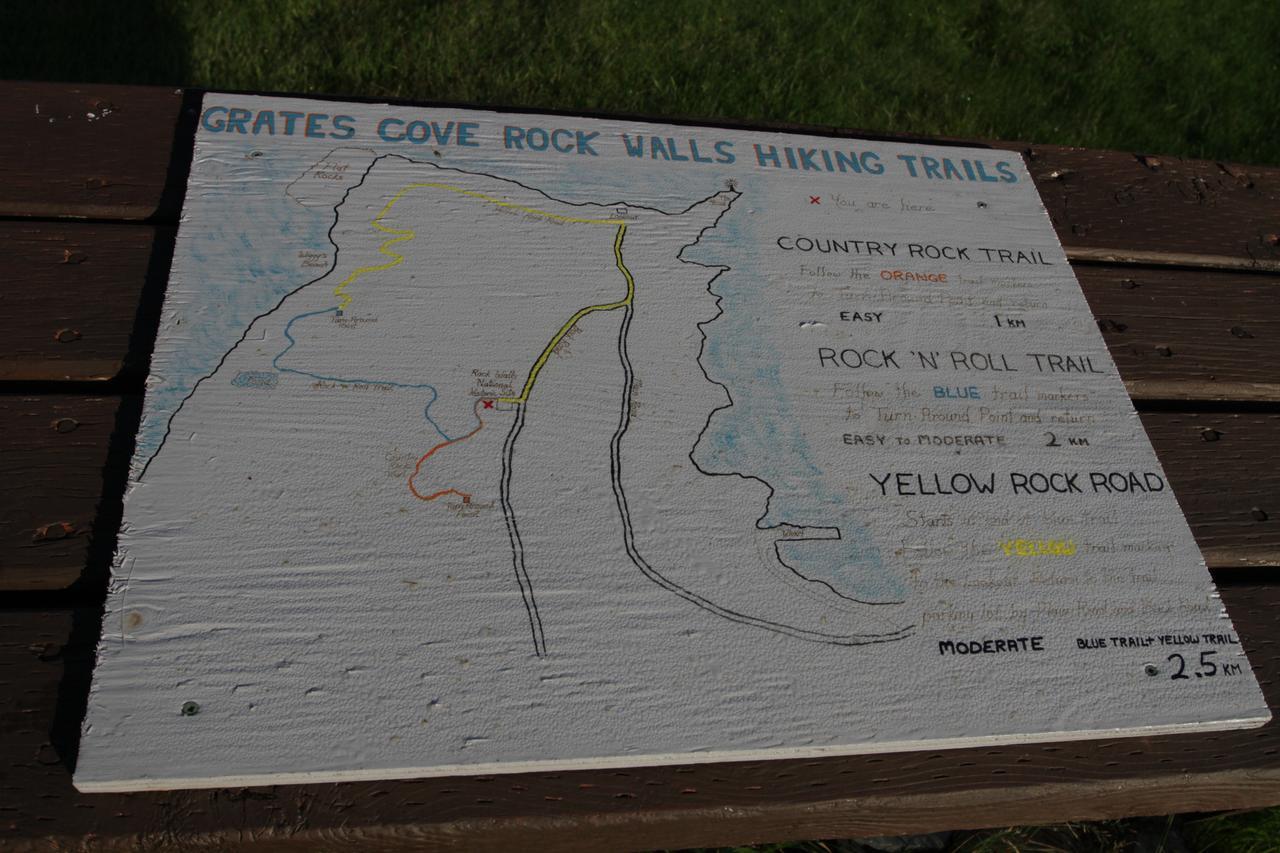 GRATES COVE ROCK WALLS HIKING TRAILS
Flat
Rocks
x You are here
Lookout
COUNTRY ROCK TRAIL
Follow the ORANGE trail markers
to Turn-Around Point and return
EASY 1 KM
Beach
Turn-Around
Point
ROCK 'N' ROLL TRAIL
Follow the BLUE trail markers
to Turn Around Point and return
EASY TO MODERATE 2 KM
Rock Walls
National
Historic Site
Rock 'n' Roll Trail
YELLOW ROCK ROAD
Starts at end of blue trail
Follow the YELLOW trail markers
Turn Around
Point
Wharf
to the Lookout. Return to the
parking lot by Main Road and Back Road
MODERATE BLUE TRAIL + YELLOW TRAIL
2.5 KM